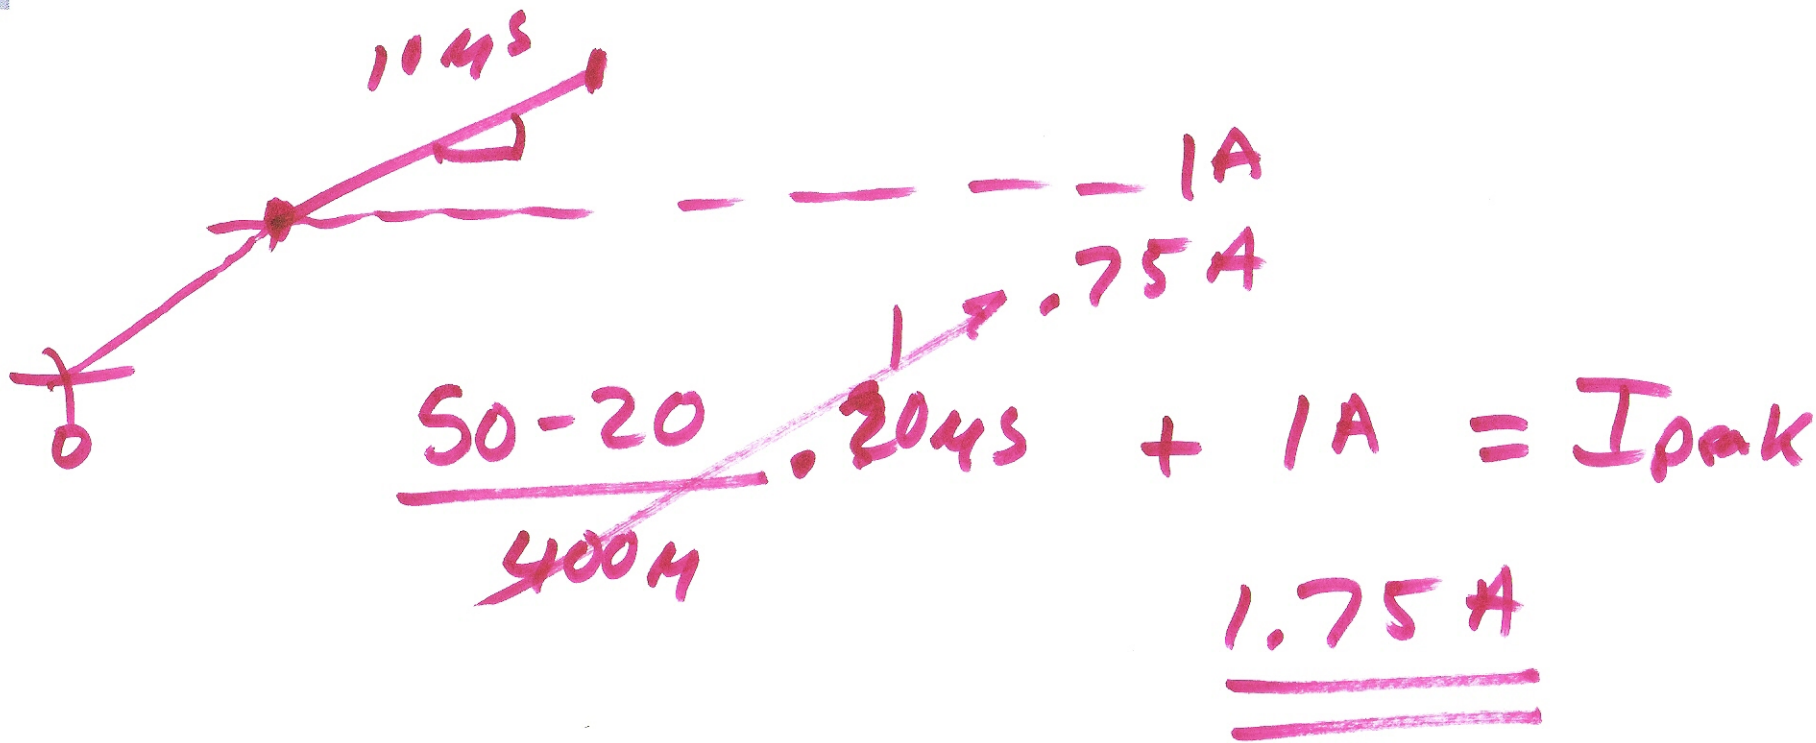 10μs
1A
.75A
50-20
400μ
. 20μs + 1A = Ipeak
0
1.75A